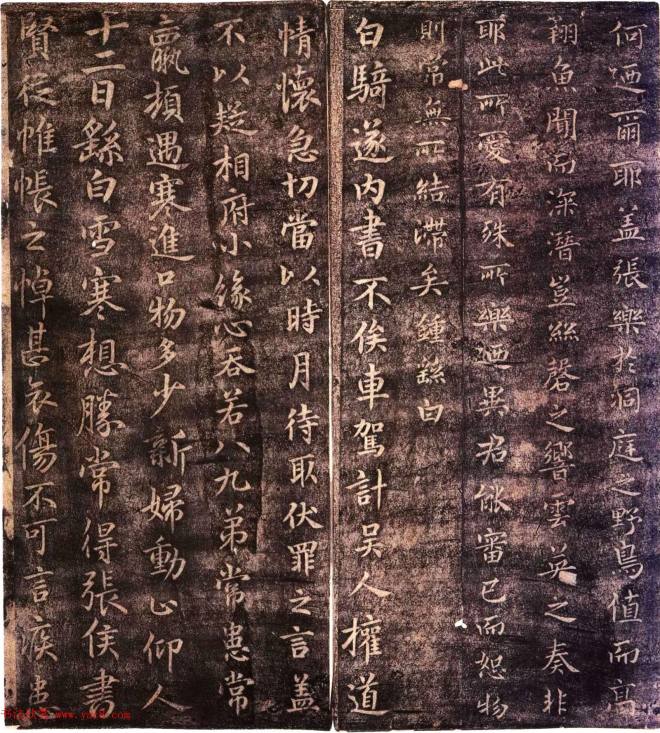 何迺爾耶盖張樂於洞庭之野鳥值而高
翔魚聞而深潛豈絲磬之響雲英之奏非
耶此所愛有殊所樂迺異君能審己而恕物
則常無所結滯矣鍾繇白
白騎遂内書不俟車駕計吴人權道
情懷急切當以時月待取伏罪之言盖
不以疑相府小緣心吞若八九弟常患常
羸頓遇寒進口物多少新婦動止仰人
十二日繇白雪寒想勝常得張侯書
賢從帷帳之悼甚哀傷不可言疾患